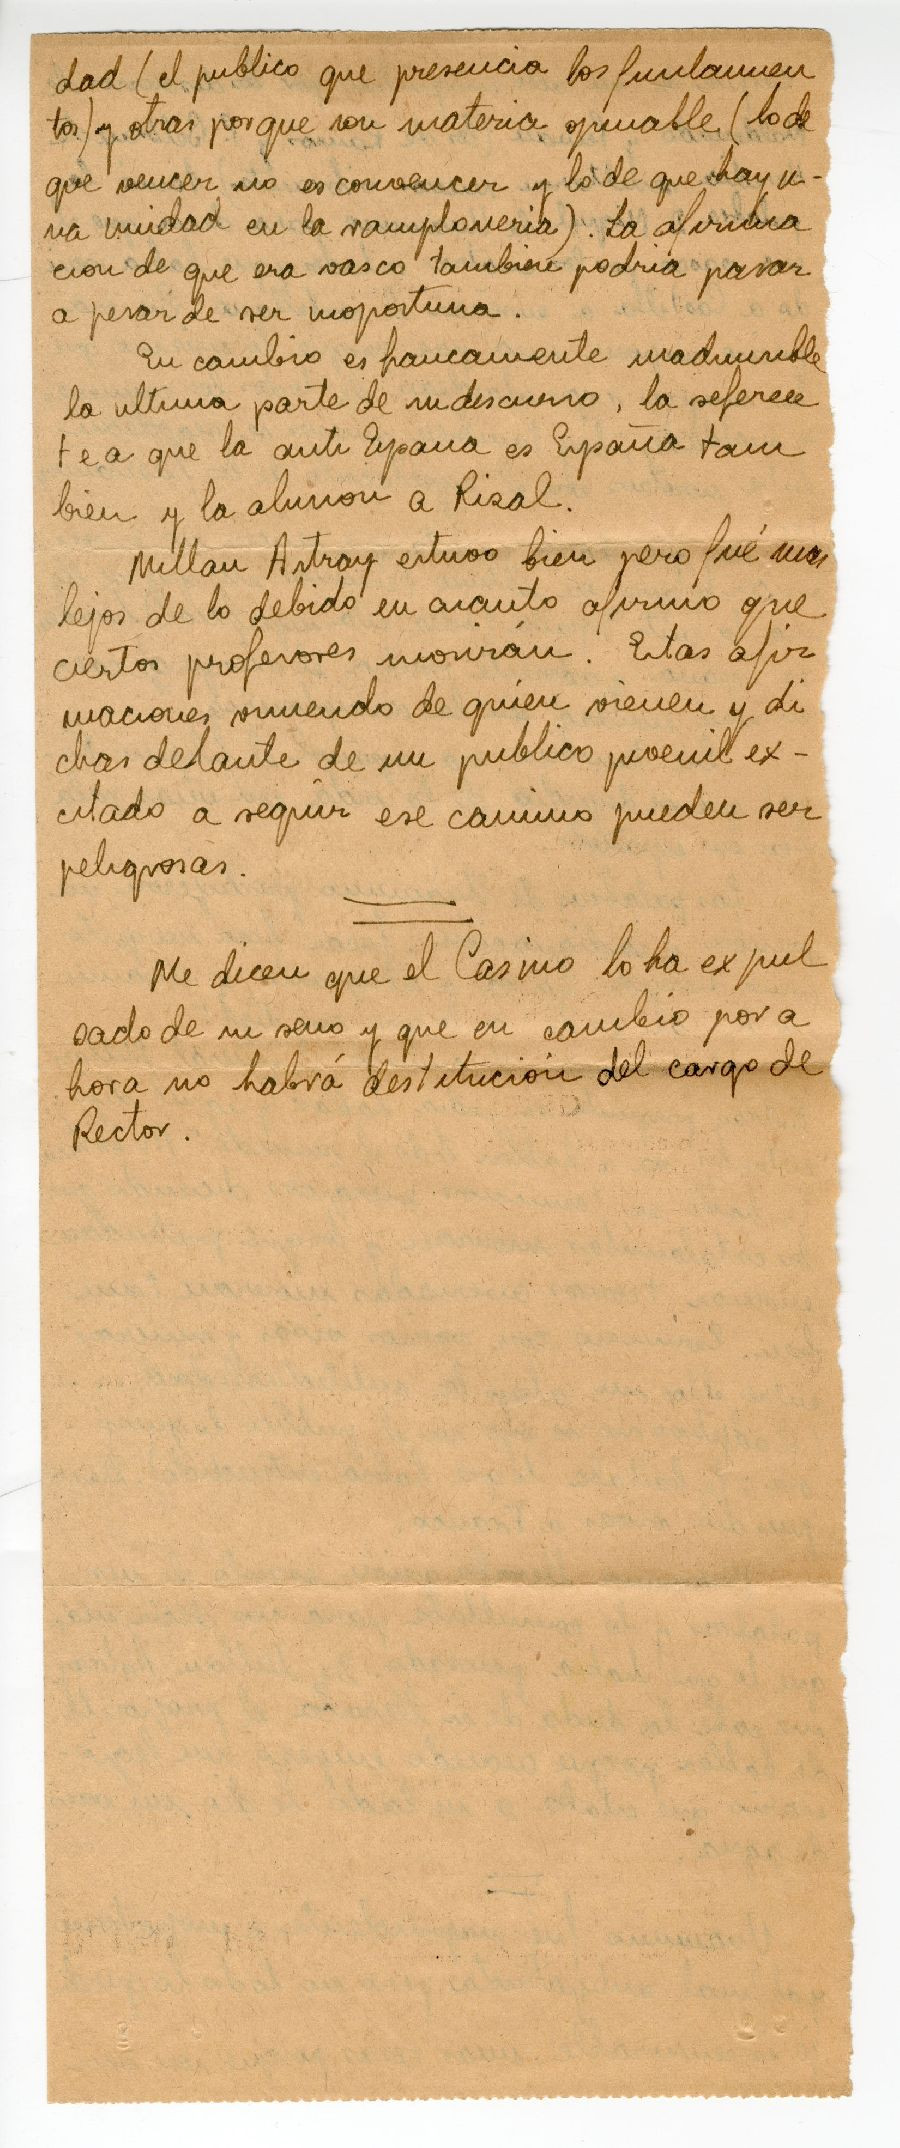 dad (el publico que presencia los fusilamien
tos) y otras porque son materia opinable (lo de
que vencer no es convencer y lo de que hay u-
na unidad en la ramploneria). La afirma
cion de que era vasco tambien podria pasar
a pesar de ser inoportuna.
En cambio es francamente inadmisible
la ultima parte de su discurso, la referen
te a que la anti España es España tam
bien y la alusion a Rizal.
Millan Astray estuvo bien pero fué mas
lejos de lo debido en cuanto afirmo que
ciertos profesores morirán. Estas afir
maciones viniendo de quien vienen y di
chas delante de un publico juvenil ex-
citado a seguir ese camino pueden ser
peligrosas.
Me dicen que el Casino lo ha expul
sado de su seno y que en cambio por a
hora no habrá destitución del cargo de
Rector.